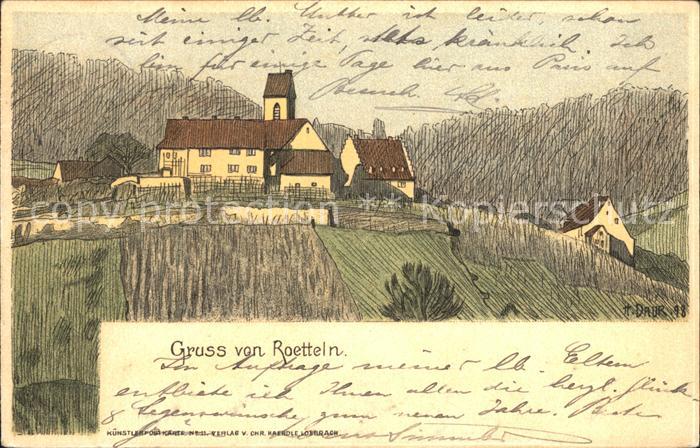 Meine lb. Mutter ist leider, schon
seit einiger Zeit, stets kränklich. Ich
bin für einige Tage hier aus Paris auf
Besuch
copy protection ** Kopierschutz
H. DAUR 98
Gruss von Roetteln.
Im Auftrage meiner lb. Eltern
entbiete ich Ihnen allen die herzl. Glück
& Segenswünsche zum neuen Jahre. Beste
KÜNSTLERPOSTKARTE No 11. VERLAG V. CHR. HAENDLE LOERRACH.